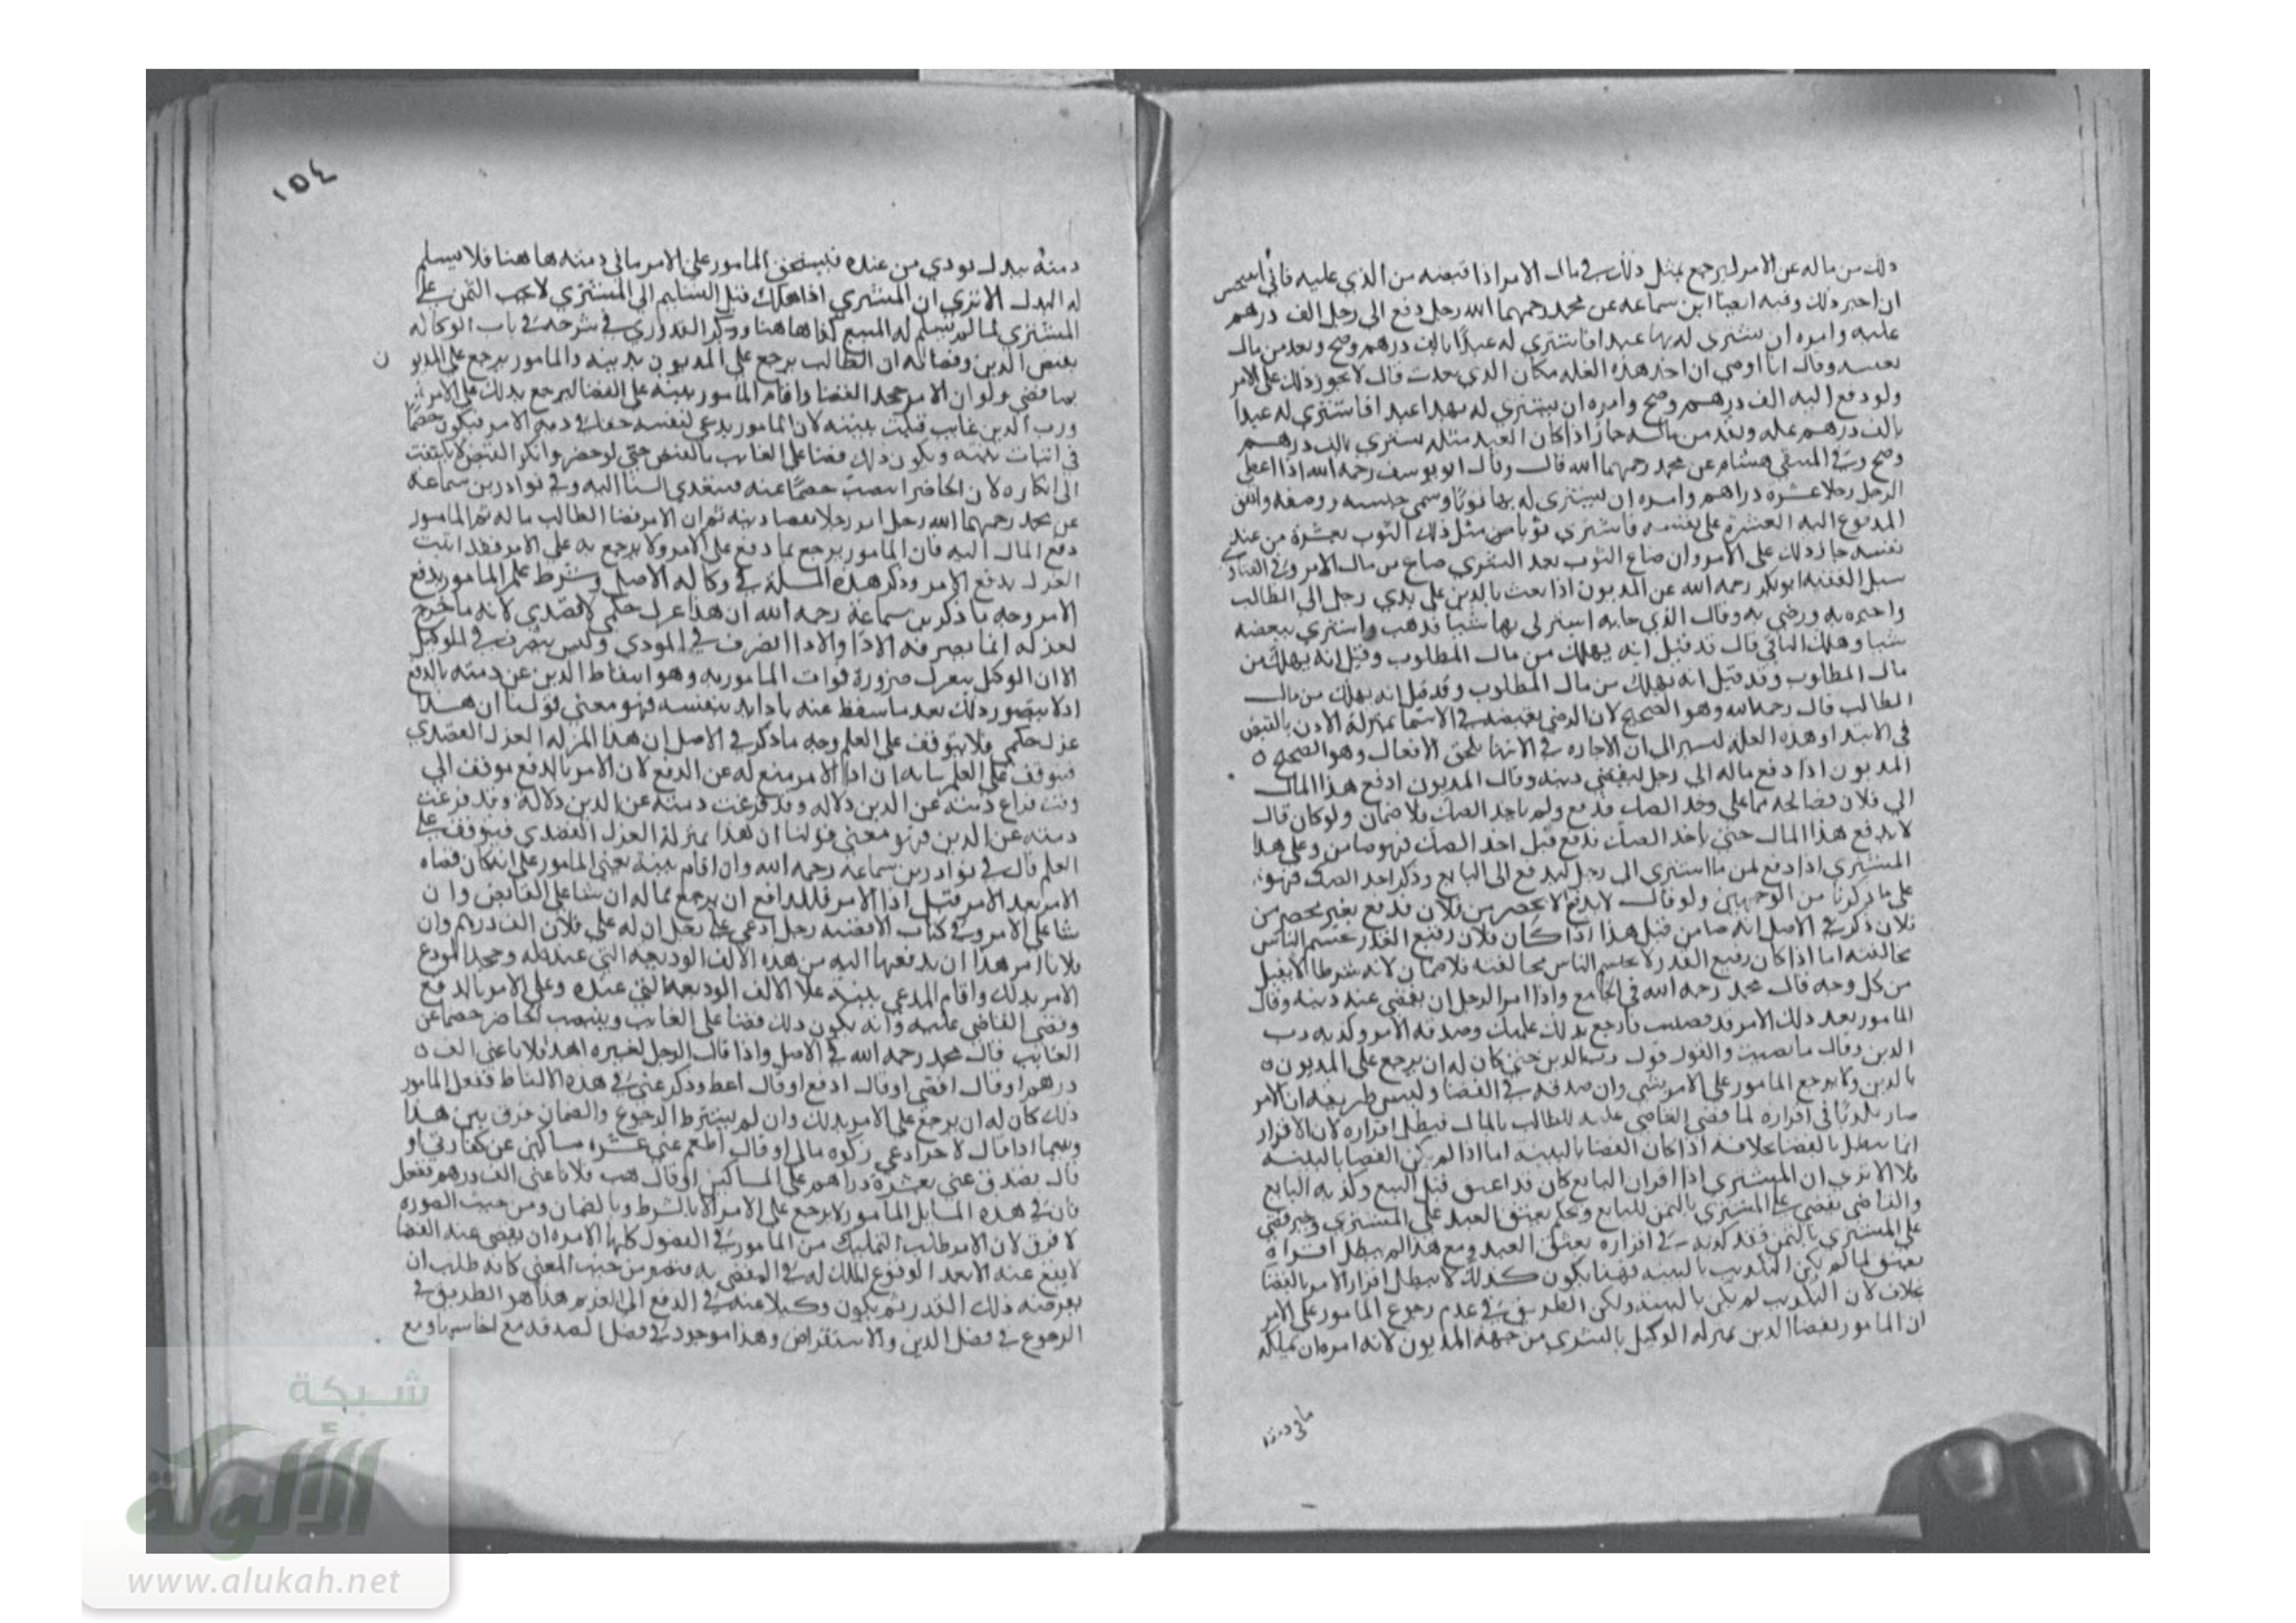 ذلك من ماله عن الامر ليرجع بمثل ذلك في مال الامر اذا قبضه من الذي عليه فاني استحسن
ان اجيز ذلك وفيه ايضا ابن سماعه عن محمد رحمهما الله رجل دفع الى رجل الف درهم
عليه وامره ان يشتري له بها عبدا فاشترى له عبدا بالف درهم وضح ونقد من مال
نفسه وقال انا اوصي ان اخذ هذه الغله مكان الذي نقدت قال لا يجوز ذلك على الامر
ولو دفع اليه الف درهم وضح وامره ان يشتري له بهذا عبدا فاشترى له عبدا
بالف درهم غله ونقد من ماله جاز اذا كان العبد مثله يشترى بالف درهم
وضح وفي المنتقى هشام عن محمد رحمهما الله قال وقال ابو يوسف رحمه الله اذا اعطى
الرجل رجلا عشره دراهم وامره ان يشتري له بها ثوبا وسمى جنسه وصفه وانفق
المدفوع اليه العشرة على نفسه فاشترى ثوبا من مثل ذلك الثوب بعشرة من عند
نفسه جاز ذلك على الامر وان ضاع الثوب بعد الشري ضاع من مال الامر وفي الفتاوى
سيل الفقيه ابو بكر رحمه الله عن المديون اذا بعث بالدين على يدي رجل الى الطالب
واخبره به ورضي به وقال الذي جا به اشتر لي بها شيا فذهب واشترى ببعضه
شيا وهلك الباقي قال قد قيل انه يهلك من مال المطلوب وقيل انه يهلك من
مال المطلوب وقد قيل انه يهلك من مال المطلوب وقد قيل انه يهلك من مال
الطالب قال رحمه الله وهو الصحيح لان الرضي بقبضه في الانتها بمنزلة الاذن بالقبض
في الابتدا وهذه العله تشير الى ان الاجازه في الانتها تلحق الافعال وهو الصحيح ه
المديون اذا دفع ماله الى رجل ليقضي دينه وقال المديون ادفع هذا المال
الى فلان قضا لحقه مما علي وخذ الصك فدفع ولم ياخذ الصك فلا ضمان ولو كان قال
لا يدفع هذا المال حتى ياخذ الصك فدفع قبل اخذ الصك فهو ضامن وعلى هذا
المشتري اذا دفع ثمن ما اشترى الى رجل ليدفع الى البايع وذكر اخذ الصك فهو
على ما ذكرنا من الوجهين ولو قال لا يدفع الا بمحضر من فلان فدفع بغير محضر من
فلان ذكر في الاصل انه ضامن قيل هذا اذا كان فلان رفيع القدر يحتشم الناس
مخالفته اما اذا كان رفيع القدر لا يحتشم الناس مخالفته فلا ضمان لانه شرط لا يفيد
من كل وجه قال محمد رحمه الله في الجامع واذا امر الرجل ان يقضي عنه دينه وقال
المامور بعد ذلك الامر قد قضيت فارجع بذلك عليك وصدقه الامر وكذبه رب
الدين وقال ما قضيت والقول قول رب الدين حتى كان له ان يرجع على المديون ه
بالدين ولا يرجع المامور على الامر بشي وان صدقه في القضا وليس طريقه ان الامر
صار مكذبا في اقراره لما قضى القاضي عليه للطالب بالمال فيبطل اقراره لان الاقرار
انما يبطل بالقضا بخلافه اذا كان القضا بالبينه اما اذا لم يكن القضا بالبينه
فلا الا ترى ان المشتري اذا اقر ان البايع كان قد اعتق قبل البيع وكذبه البايع
والقاضي يقضي على المشتري بالثمن للبايع ويحكم بعتق العبد على المشتري وحين قضى
على المشتري بالثمن فقد كذبه في اقراره بعتق العبد ومع هذا لم يبطل اقراره
بعتق لما لم يكن التكذيب بالبينه فهنا يكون كذلك لا يبطل اقرار الامر بالقضا
بخلاف لان التكذيب لم يكن بالبينة ولكن الطريق في عدم رجوع المامور على الامر
ان المامور بقضا الدين بمنزله الوكيل بالشري من جهة المديون لانه امره ان يملكه
ما في ذمته
١٥٤
ذمته ببدل يودي من عنده فيستحق المامور على الامر ما في ذمته هاهنا فلا يسلم
له البدل الا ترى ان المشتري اذا هلك قبل التسليم الى المشتري لا يجب الثمن على
المشتري لما لم يسلم له المبيع كذا هاهنا وذكر القدوري في شرحه في باب الوكاله
بقبض الدين وقضاله ان الطالب يرجع على المديون بدينه والمامور يرجع على المديون
بما قضى ولو ان الامر جحد القضا واقام المامور بينه على القضا ليرجع بذلك على الامر
ورب الدين غايب قبلت بينته لان المامور يدعي لنفسه حقا في ذمه الامر فيكون خصما
في اثبات بينته ويكون ذلك قضا على الغايب بالقبض حتى لو حضر وانكر القبض لا يلتفت
الى انكاره لان الحاضر انتصب خصما عنه فيتعدي اليه وفي نوادر بن سماعه
عن محمد رحمهما الله رجل امر رجلا بقضا دينه ثم ان الامر قضا الطالب ماله ثم المامور
دفع المال اليه فان المامور يرجع بما دفع على الامر ولا يرجع به على الامر فقد اثبت
العزل بدفع الامر وذكر هذه المسلة في وكاله الاصل وشرط علم المامور بدفع
الامر وجه ما ذكر بن سماعة رحمه الله ان هذا عزل حكمي لا قصدي لانه ما خرج
لعزله انما بصرفه الادا والادا تصرف في المودي وليس بتصرف في الموكل
الا ان الوكيل ينعزل ضرورة فوات المامور به وهو اسقاط الدين عن ذمته بالدفع
اذ لا يتصور ذلك بعد ما سقط عنه بادايه بنفسه فهو معنى قولنا ان هذا
عزل حكمي فلا يتوقف على العلم وجه ما ذكر في الاصل ان هذا العزل القصدي
فيتوقف على العلم بيانه ان ادا الامر منع له عن الدفع لان الامر بالدفع موقف الى
وقت فراغ ذمته عن الدين دلاله وقد فرغت ذمته عن الدين دلالة وقد فرغت
ذمته عن الدين فهو معنى قولنا ان هذا بمنزلة العزل القصدي فيتوقف على
العلم قال في نوادر بن سماعه رحمه الله وان اقام بينة يعني المامور على انه كان قضاه
الامر بعد الامر قبل ادا الامر فللدافع ان يرجع بماله ان شا على القابض وان
شا على الامر وفي كتاب الاقضيه رجل ادعى على رجل ان له على فلان الف درهم وان
فلانا امر هذا ان يدفعها اليه من هذه الالف الوديعه التي عنده له وجحد المودع
الامر بذلك واقام المدعي بينة على الالف الوديعه التي عنده وعلى الامر بالدفع
وقضى القاضي عليه وانه يكون ذلك قضا على الغايب وينتصب الحاضر خصما عن
الغايب قال محمد رحمه الله في الاصل واذا قال الرجل لغيره انقد فلانا عني الف ه
درهم او قال اقض او قال ادفع او قال اعط وذكر عني في هذه الالفاظ ففعل المامور
ذلك كان له ان يرجع على الامر بذلك وان لم يشترط الرجوع والضمان فرق بين هذا
وبينما اذا قال لاخر اد عني زكوه مالي او قال اطعم عني عشره مساكين عن كفارتي او
قال تصدق عني بعشرة دراهم على المساكين او قال هب فلانا عني الف درهم ففعل
فان في هذه المسايل المامور لا يرجع على الامر الا بالشرط وبالضمان ومن حيث الصوره
لا فرق لان الامر طالب التمليك من المامور في الفصول كلها الامر ان يقضي عنه القضا
لا يقع عنه الا بعد الوقوع الملك له في المقضي به فيصير من حيث المعنى كانه طلب ان
يقرضه ذلك القدر ثم يكون وكيلا عنه في الدفع الى الغريم هذا هو الطريق في
الرجوع في فصل الدين والاستقراض وهذا موجود في فصل الصدقه مع
شبكة
الألوكة
www.alukah.net